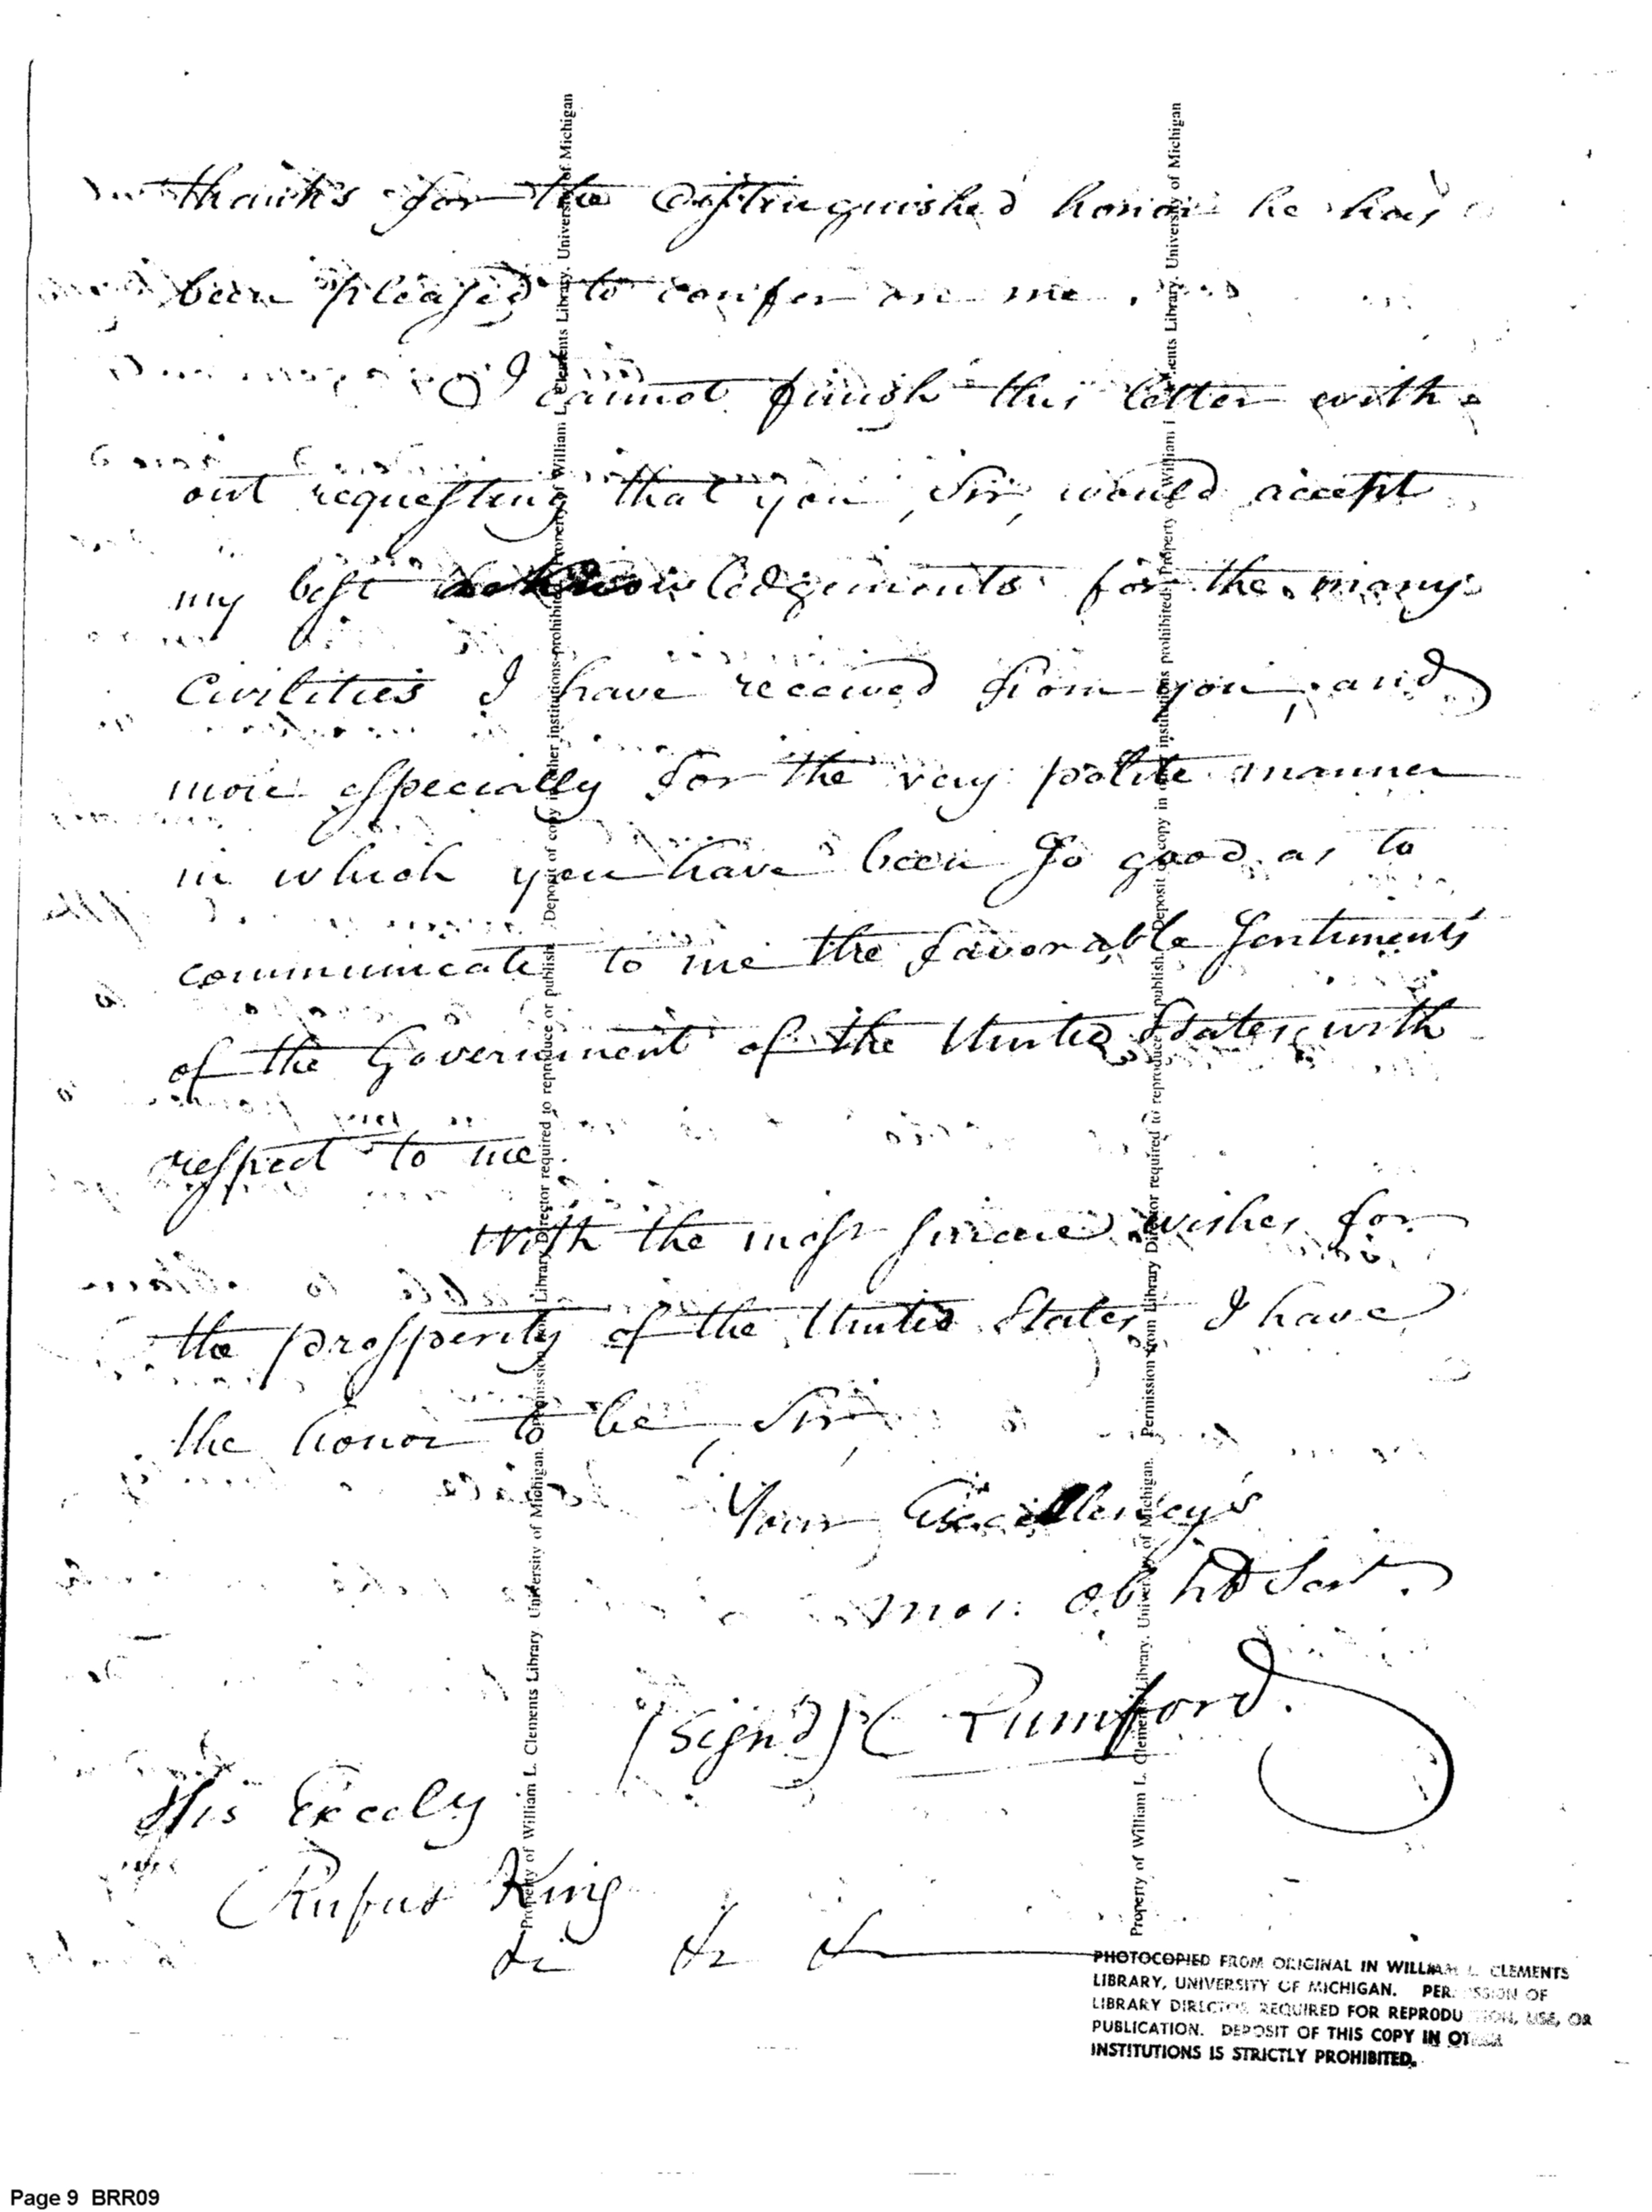 thanks for the distinguished honor he has
been pleased to confer on me.
I cannot finish this letter with-
out requesting that you, Sir, would accept
my best acknowledgements for the many
Civilities I have received from you, and
more especially for the very polite manner
in which you have been so good as to
communicate to me the favorable Sentiments
of the Government of the United States with
respect to me.
With the most sincere wishes for
the prosperity of the United States I have
the honor to be, Sir,
Your Excellency's
mos: ob hb Sert.
(Signd) Rumford.
His Excely
Rufus King
&c &c &
Property of William L. Clements Library. University of Michigan. Permission from Library Director required to reproduce or publish. Deposit of copy in other institutions prohibited. Property of William L. Clements Library. University of Michigan
Property of William L. Clements Library. University of Michigan. Permission from Library Director required to reproduce or publish. Deposit of copy in other institutions prohibited. Property of William L. Clements Library. University of Michigan
PHOTOCOPIED FROM ORIGINAL IN WILLIAM L. CLEMENTS
LIBRARY, UNIVERSITY OF MICHIGAN. PERMISSION OF
LIBRARY DIRECTOR REQUIRED FOR REPRODUCTION, USE, OR
PUBLICATION. DEPOSIT OF THIS COPY IN OTHER
INSTITUTIONS IS STRICTLY PROHIBITED.
Page 9 BRR09